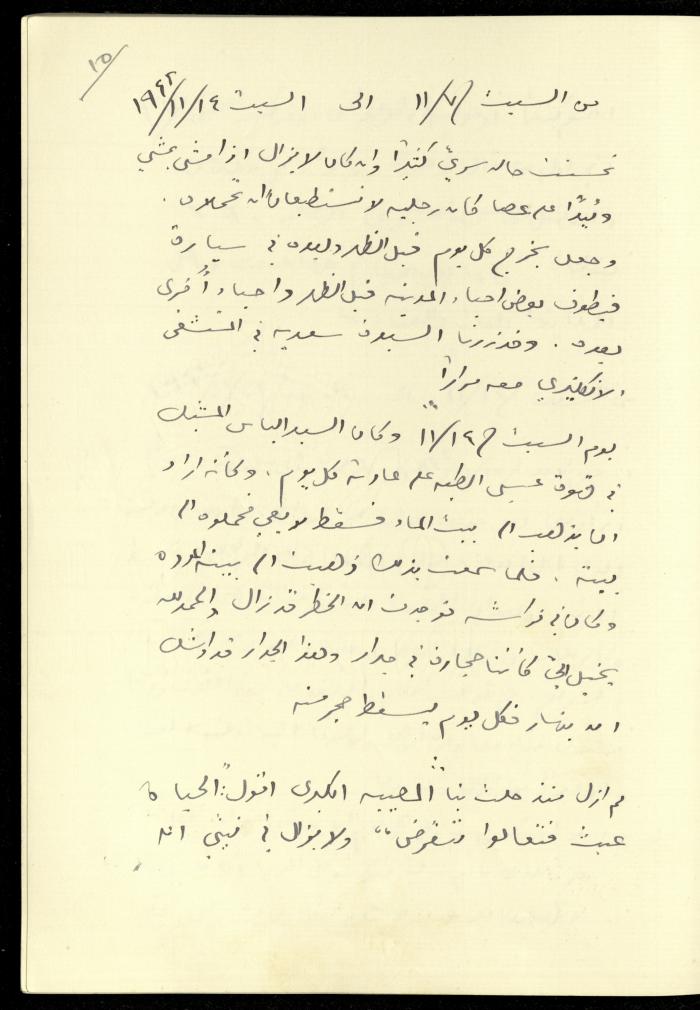 ١٥
من السبت ١١/٧ الى السبت ١٩٤٢/١١/١٤
تحسنت حال سري كثيرًا وان كان لا يزال اذا مشى يمشي
وئيدًا على عصا كان رجليه لا تستطيعان ان تحملاه .
وجعل يخرج كل يوم قبل الظهر وبعده في سيارة
فيطوف بعض احياء المدينه قبل الظهر واحياء أخرى
بعده . وقد زرنا السيدة سعديه في المستشفى
الانكليزي معه مرارًا
يوم السبت ١١/١٤ وكان السيد الياس المشبك
في قهوة عيسى الطبه على عادته كل يوم . وكأنه اراد
ان يذهب الى بيت الماء فسقط لا يعي فحملوه الى
بيته . فلما سمعت بذلك ذهبت الى بيته اعوده
وكان في فراشه فوجدت ان الخطر قد زال والحمد لله
يخيل اليّ كأننا حجارة في جدار وهذا الجدار قد اوشك
ان ينهار فكل يوم يسقط حجر منه
لم ازل منذ حلت بنا المصيبه الكبرى اقول "الحياة
عبث فتعالوا ننقرض" ولا يزال في نيتي ان